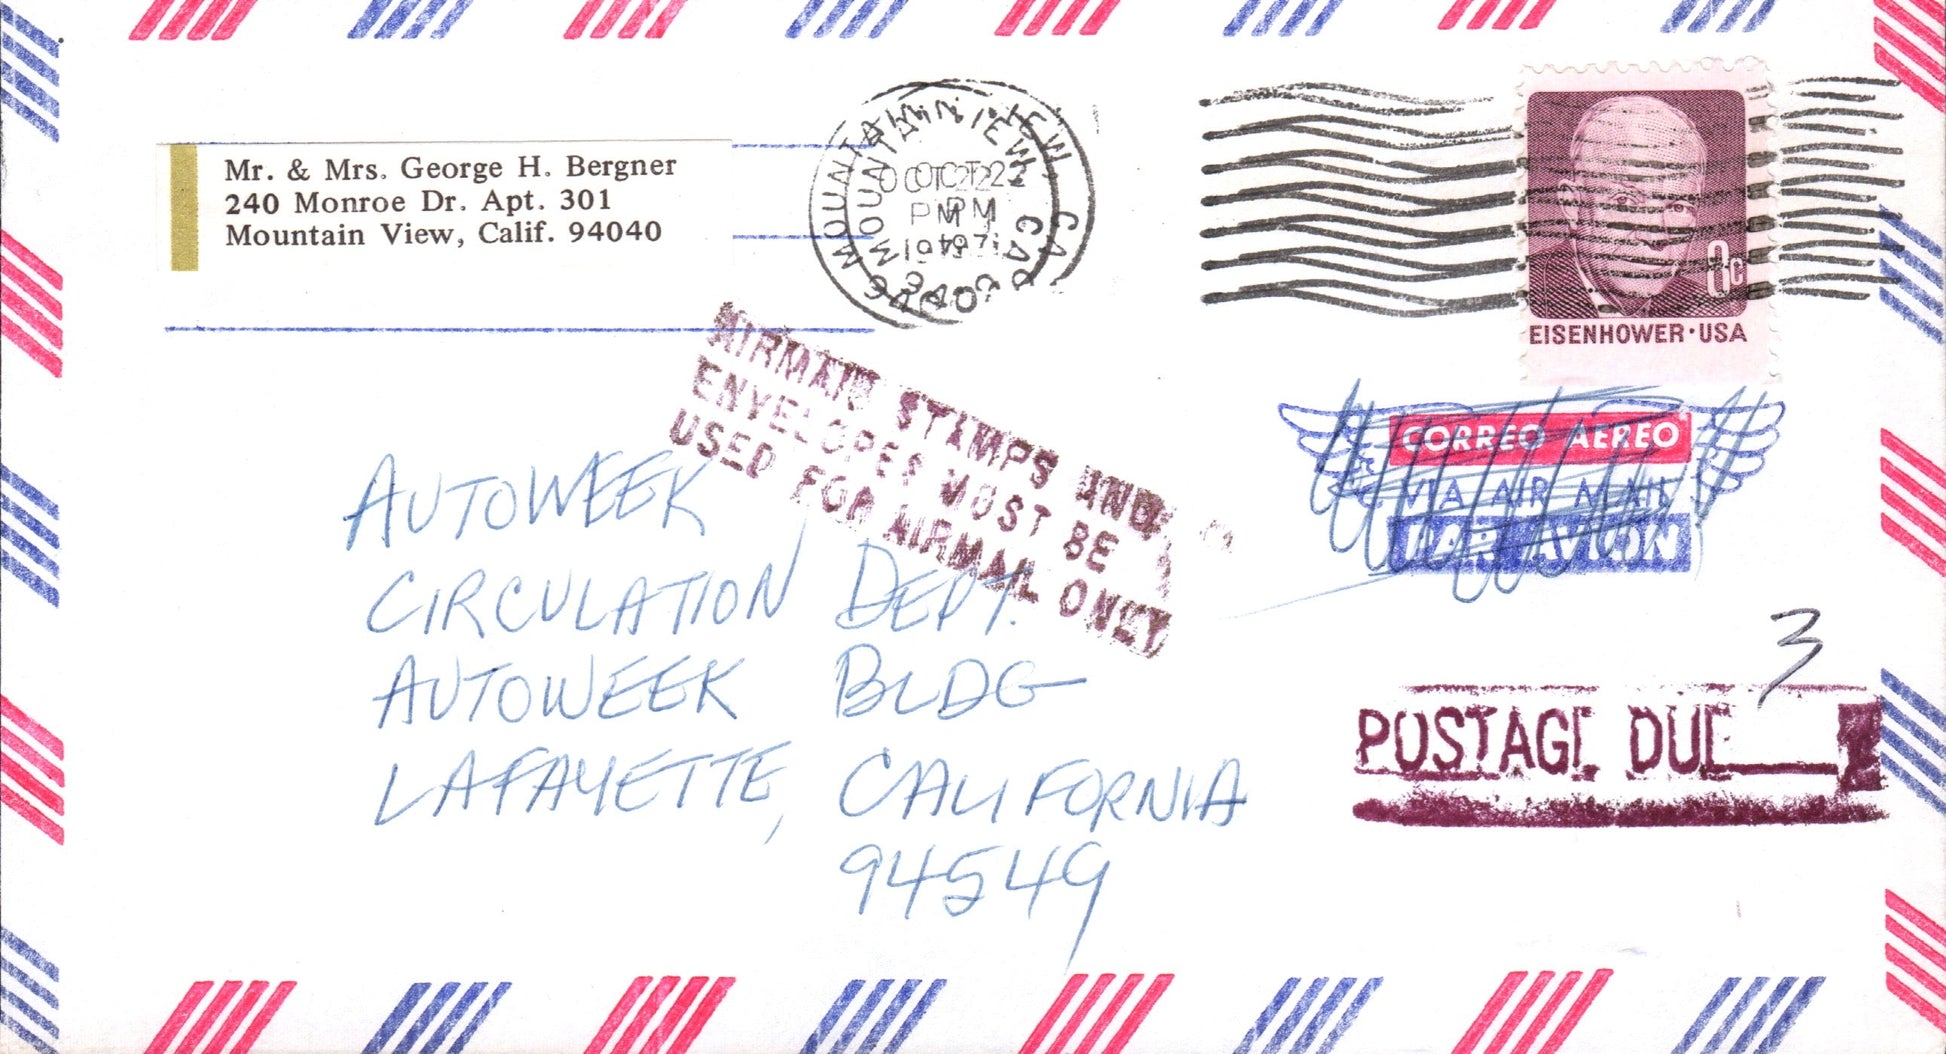 Mr. & Mrs. George H. Bergner
240 Monroe Dr. Apt. 301
Mountain View, Calif. 94040
MOUNTAIN VIEW, CA
OCT 22
PM
EISENHOWER · USA
AIRMAIL STAMPS AND
ENVELOPES MUST BE
USED FOR AIRMAIL ONLY
CORREO AEREO
VIA AIR MAIL
PAR AVION
AUTOWEEK
CIRCULATION DEPT.
AUTOWEEK BLDG
LAFAYETTE, CALIFORNIA
94549
3
POSTAGE DUE